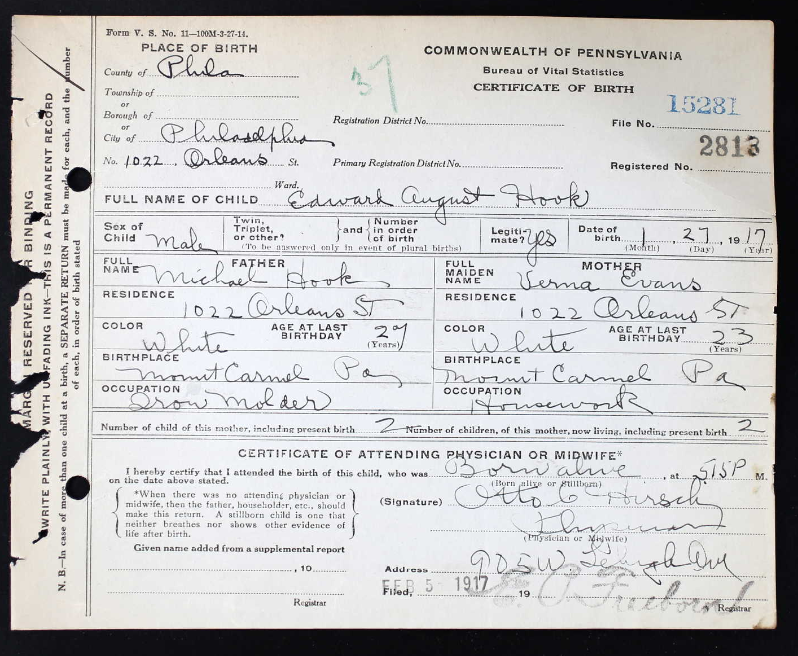 Form V. S. No. 11—100M-3-27-14.
PLACE OF BIRTH
County of Phila
Township of
or
Borough of
or
City of Philadelphia
No. 1022 Orleans St.
Ward.
37
COMMONWEALTH OF PENNSYLVANIA
Bureau of Vital Statistics
CERTIFICATE OF BIRTH
Registration District No.
File No. 15281
Primary Registration District No.
Registered No. 2813
FULL NAME OF CHILD Edward August Hook
Sex of Child Male
Twin, Triplet, or other?
and
Number in order of birth
(To be answered only in event of plural births)
Legiti-mate? Yes
Date of birth 1, 27, 1917
(Month) (Day) (Year)
FATHER
FULL NAME Michael Hook
RESIDENCE
1022 Orleans ST
COLOR White
AGE AT LAST BIRTHDAY 27
(Years)
BIRTHPLACE
Mount Carmel Pa
OCCUPATION
Iron Molder
MOTHER
FULL MAIDEN NAME Verna Evans
RESIDENCE
1022 Orleans ST
COLOR White
AGE AT LAST BIRTHDAY 23
(Years)
BIRTHPLACE
Mount Carmel Pa
OCCUPATION
Housework
Number of child of this mother, including present birth 2
Number of children, of this mother, now living, including present birth 2
CERTIFICATE OF ATTENDING PHYSICIAN OR MIDWIFE*
I hereby certify that I attended the birth of this child, who was Born alive, at 515P M.
on the date above stated.
(Born alive or Stillborn)
*When there was no attending physician or
midwife, then the father, householder, etc., should
make this return. A stillborn child is one that
neither breathes nor shows other evidence of
life after birth.
(Signature) Otto C Hirsch
Physician
(Physician or Midwife)
Given name added from a supplemental report
, 10
Registrar
Address 905 W Lehigh Ave
Filed, FEB 5 1917 19
Registrar
MARGIN RESERVED FOR BINDING
WRITE PLAINLY, WITH UNFADING INK—THIS IS A PERMANENT RECORD
N. B.—In case of more than one child at a birth, a SEPARATE RETURN must be made for each, and the number
of each, in order of birth stated